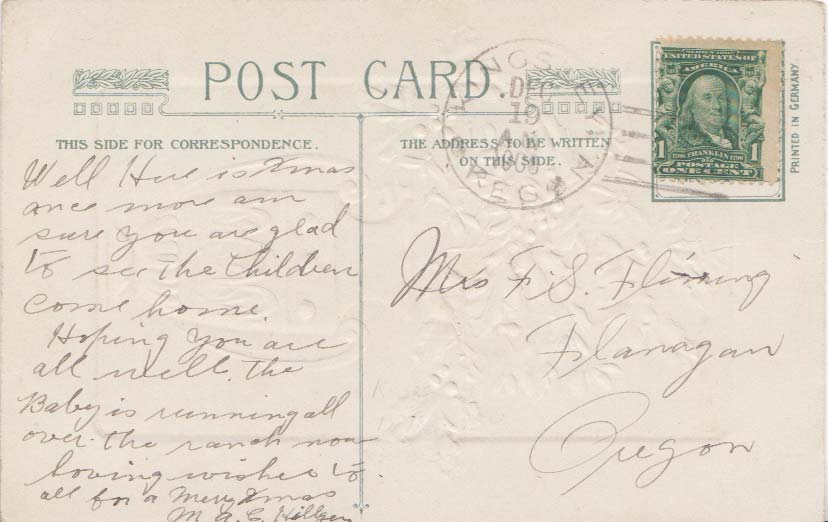 POST CARD
THIS SIDE FOR CORRESPONDENCE.
Well Here is Xmas
once more am
sure you are glad
to see the Children
come home.
Hoping you are
all well. the
Baby is running all
over the ranch now
loving wishes to
all for a Merry Xmas
M A C
THE ADDRESS TO BE WRITTEN
ON THIS SIDE.
DEC
19
OREGON
SERIES 1902
UNITED STATES OF
AMERICA
1 FRANKLIN 1
POSTAGE
ONE CENT
PRINTED IN GERMANY
Mrs F. S. Fleming
Flanagan
Oregon